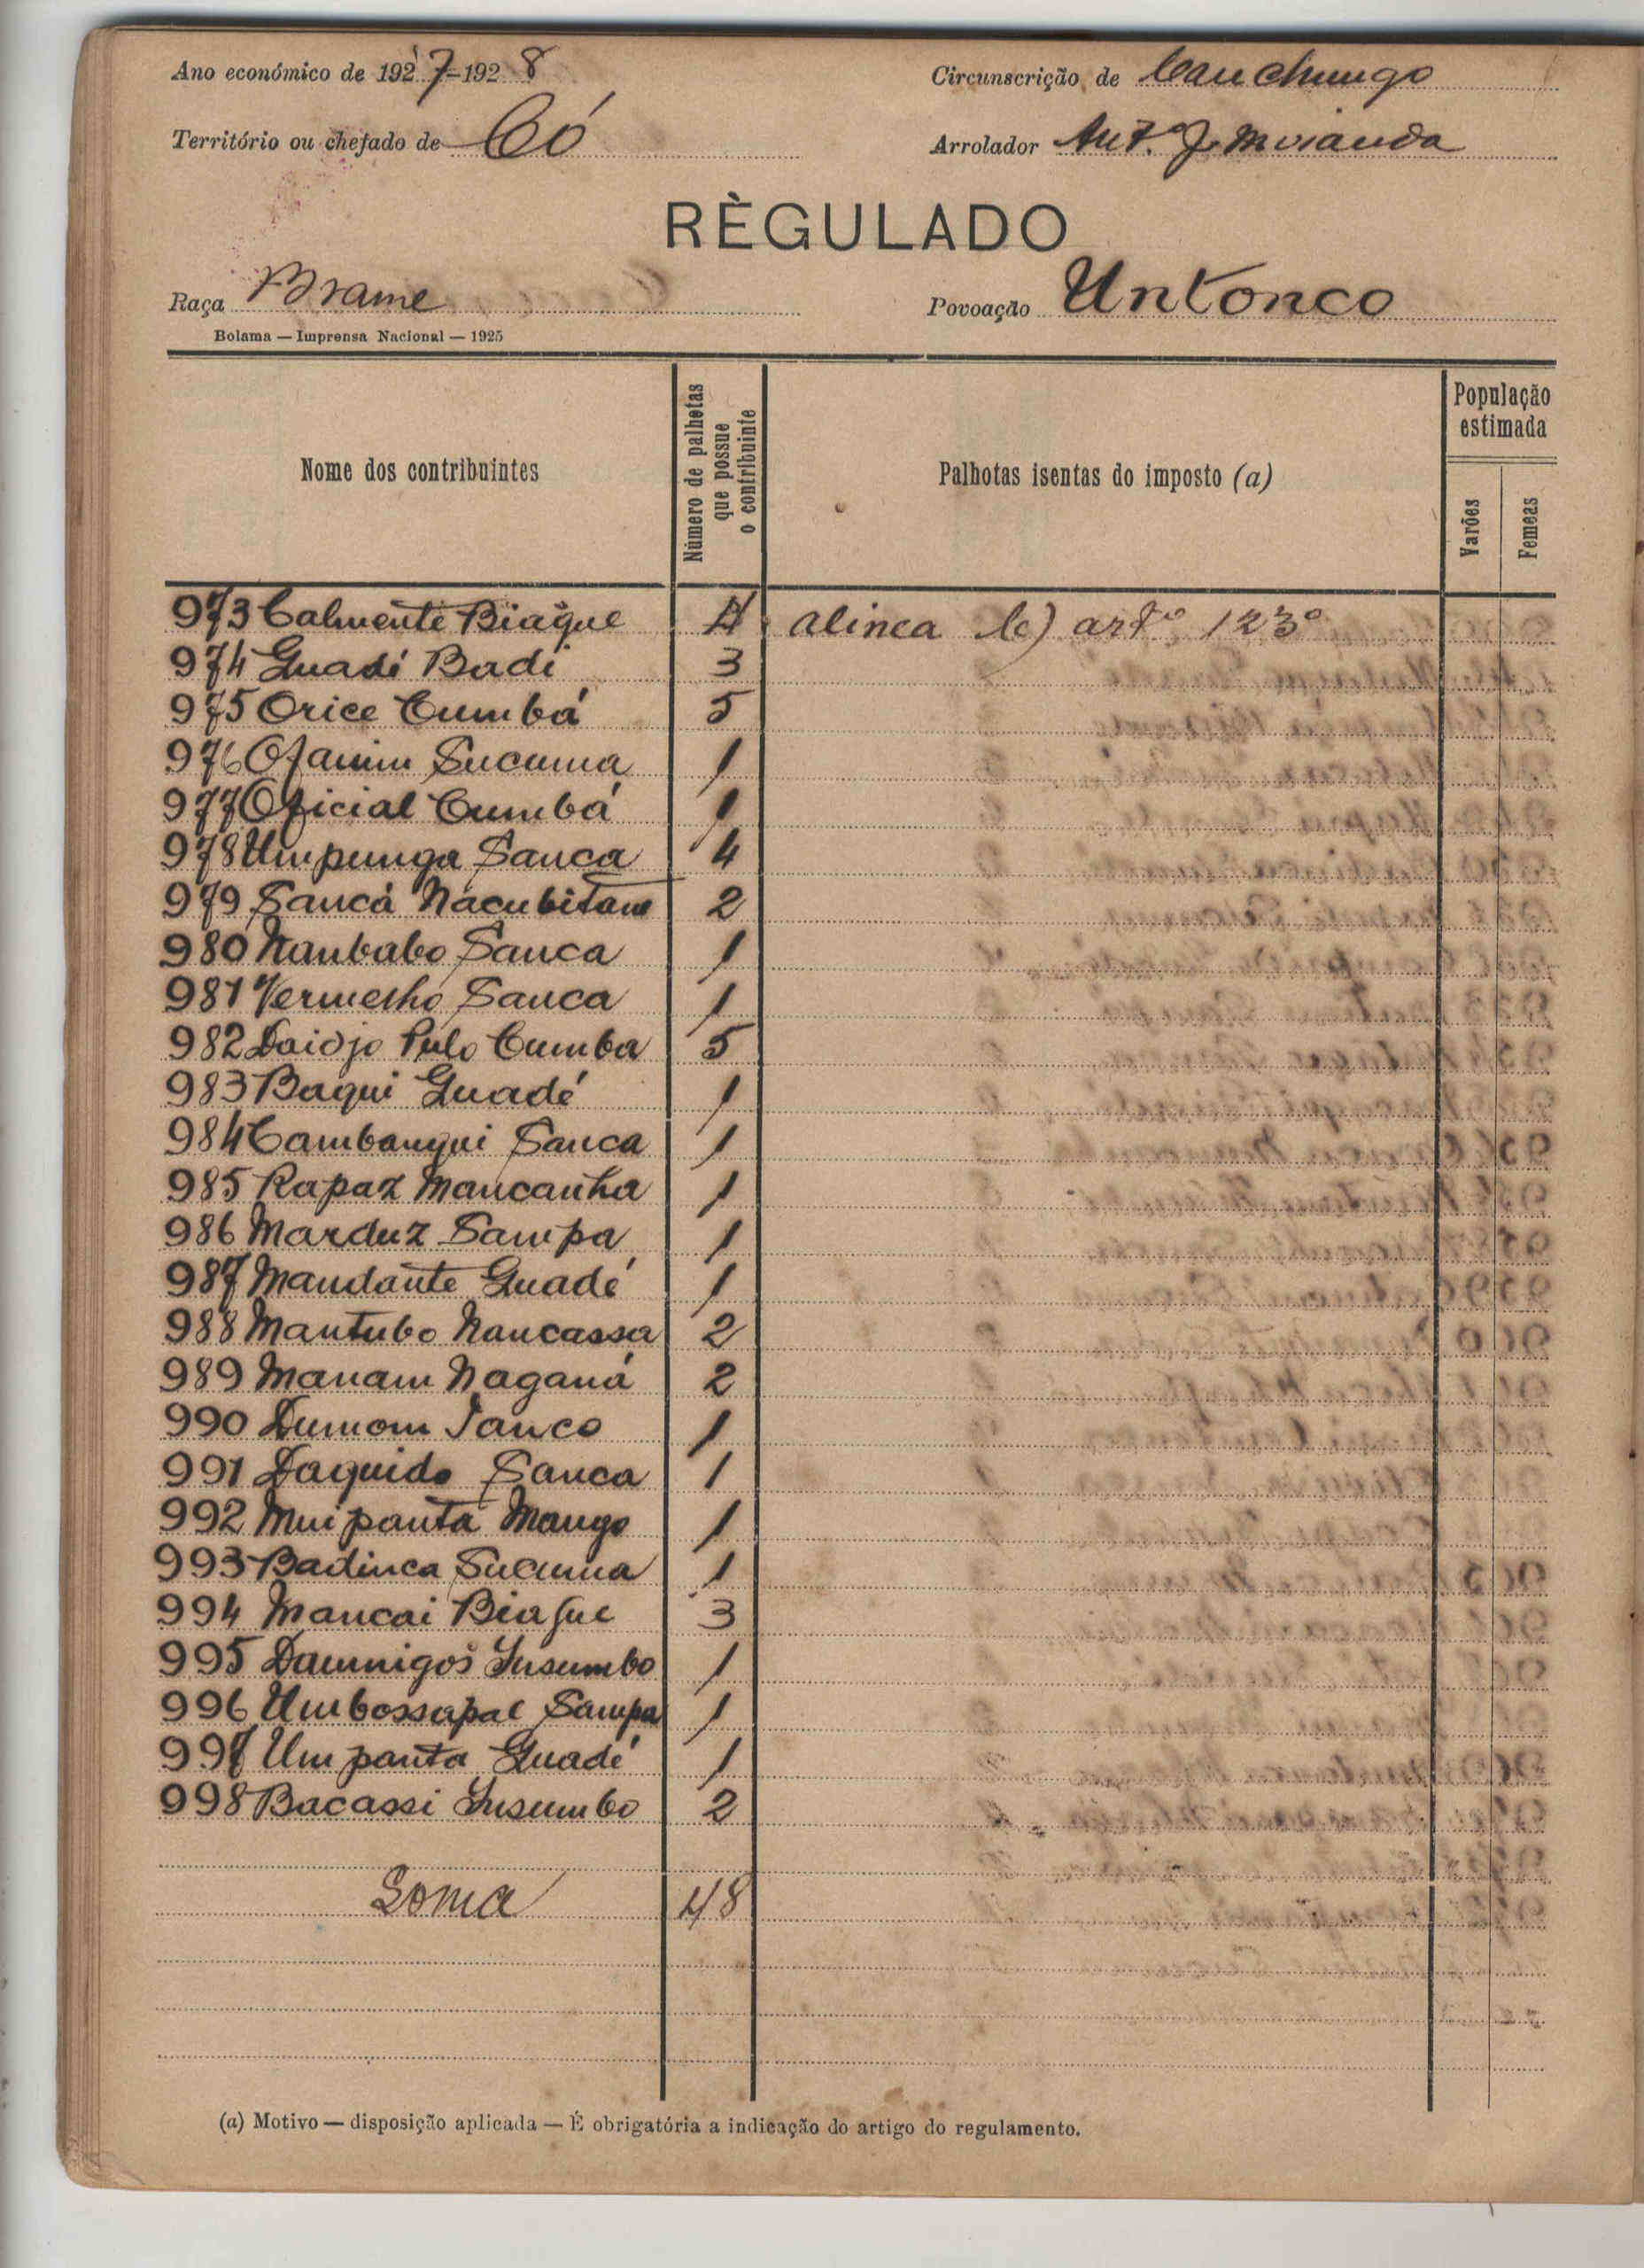 Ano económico de 1927-1928 Circunscrição de Canchungo
Território ou chefado de Có Arrolador Antº J. Miranda
RÈGULADO
Raça Brame Povoação Untonco
Bolama — Imprensa Nacional — 1925
Nome dos contribuintes Número de palhotas que possue o contribuinte Palhotas isentas do imposto (a) População estimada Varões Femeas
973 Calmente Biague 4 alinea b) artº 123º
974 Guadé Badi 3
975 Orice Cumbá 5
976 Ofamim Sucuma 1
977 Oficial Cumbá 1
978 Umpunga Sanca 4
979 Sancá Nacubitam 2
980 Nanbabo Sanca 1
981 Vermelho Sanca 1
982 Daidjo Pulo Cumba 5
983 Baqui Guadé 1
984 Cambangui Sanca 1
985 Rapaz Mancanha 1
986 Marduz Sampa 1
987 Mandante Guadé 1
988 Mantubo Nancassa 2
989 Manam Naganá 2
990 Dumom Janco 1
991 Daguido Sanca 1
992 Muipanta Mango 1
993 Badinca Sucuma 1
994 Mancai Biague 3
995 Damnigos Insumbo 1
996 Umbossapal Sampa 1
997 Umpanta Guadé 1
998 Bacassi Insumbo 2
Soma 48
(a) Motivo — disposição aplicada — É obrigatória a indicação do artigo do regulamento.